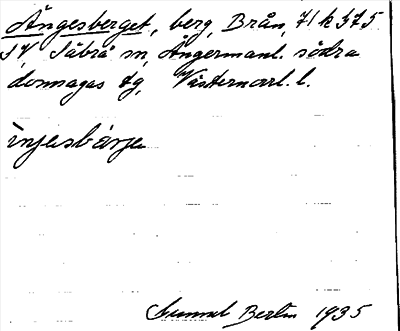 Ångesberget, berg, Brån, 71 k 375
SV, Säbrå sn, Ångermanl. södra
domsagas tg, Västernorrl. l.
ìŋesbárje
Gunnel Bertin 1935